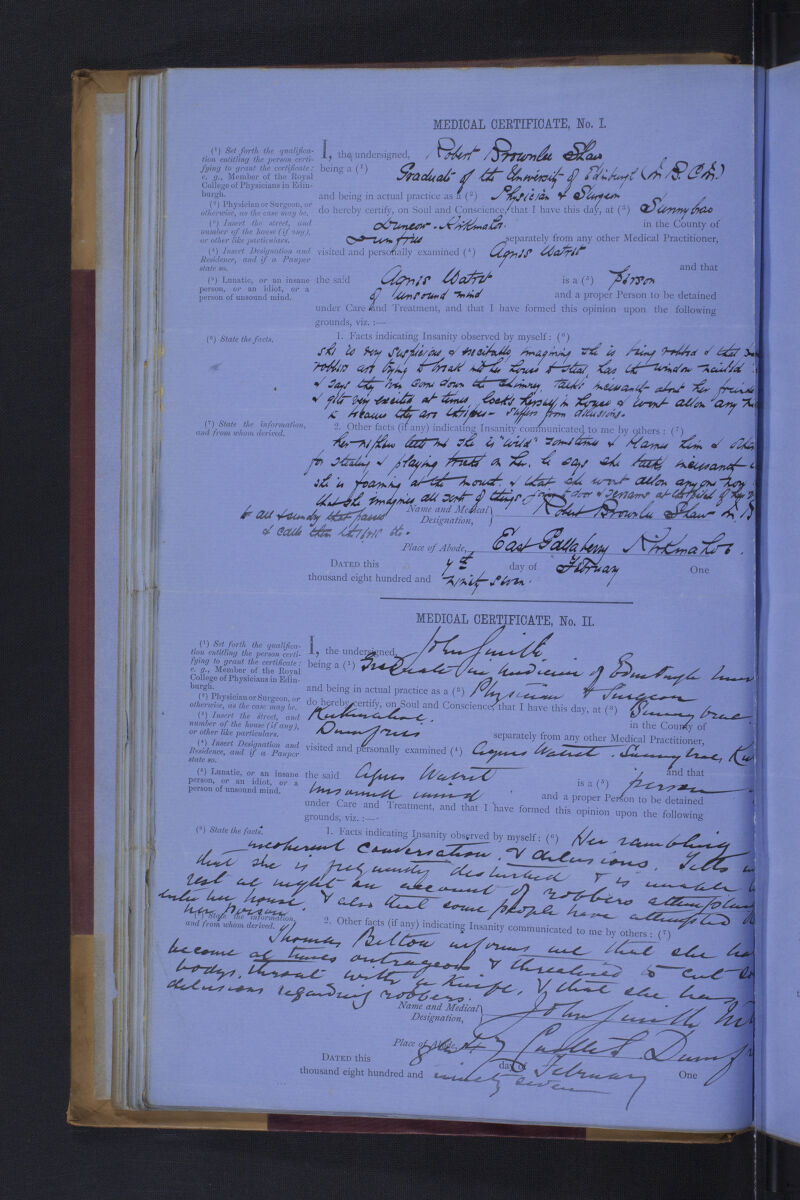 MEDICAL CERTIFICATE, No. I.
(¹) Set forth the qualifica-
tion entitling the person certi-
fying to grant the certificate:
e. g., Member of the Royal
College of Physicians in Edin-
burgh.
(²) Physician or Surgeon, or
otherwise, as the case may be.
(³) Insert the street, and
number of the house (if any),
or other like particulars.
(⁴) Insert Designation and
Residence, and if a Pauper
state so.
(⁵) Lunatic, or an insane
person, or an idiot, or a
person of unsound mind.
I, the undersigned, Robert Brownlee Shaw
being a (¹) Graduate of the University of Edinburgh (M.B. C.M.)
and being in actual practice as a (²) Physician & Surgeon
do hereby certify, on Soul and Conscience, that I have this day, at (³) Sunnybrae
Duncow. Kirkmahoe. in the County of
Dumfries separately from any other Medical Practitioner,
visited and personally examined (⁴) Agnes Watret
and that
the said Agnes Watret is a (⁵) person
of unsound mind and a proper Person to be detained
under Care and Treatment, and that I have formed this opinion upon the following
grounds, viz. :—
(⁶) State the facts.
1. Facts indicating Insanity observed by myself : (⁶)
She is very suspicious & excitable imagining she is being robbed & that
robbers are trying to break into her house & steal, has the window
& says they even come down the chimney, talks incessantly about her
& gets very excited at times, locks herself in house & wont allow any
in because they are thieves - suffers from delusions.
(⁷) State the information,
and from whom derived.
2. Other facts (if any) indicating Insanity communicated to me by others : (⁷)
Her nephew tells me she is "wild" sometimes & blames him &
for stealing & playing tricks on her. he says she talks incessantly
she is foaming at the mouth & that she wont allow anyone
that she imagines all sort of things
to all & sundry that passes
& calls them thieves etc.
Name and Medical
Designation, Robert Brownlee Shaw M.B
Place of Abode, East Gallaberry Kirkmahoe.
DATED this 7th day of February One
thousand eight hundred and ninety seven.
MEDICAL CERTIFICATE, No. II.
(¹) Set forth the qualifica-
tion entitling the person certi-
fying to grant the certificate:
e. g., Member of the Royal
College of Physicians in Edin-
burgh.
(²) Physician or Surgeon, or
otherwise, as the case may be.
(³) Insert the street, and
number of the house (if any),
or other like particulars.
(⁴) Insert Designation and
Residence, and if a Pauper
state so.
(⁵) Lunatic, or an insane
person, or an idiot, or a
person of unsound mind.
I, the undersigned, John Smith
being a (¹) Graduate in medicine of Edinburgh
and being in actual practice as a (²) Physician & Surgeon
do hereby certify, on Soul and Conscience, that I have this day, at (³) Sunny brae
Kirkmahoe. in the County of
Dumfries separately from any other Medical Practitioner,
visited and personally examined (⁴) Agnes Watret. Sunnybrae,
and that
the said Agnes Watret is a (⁵) person
unsound mind and a proper Person to be detained
under Care and Treatment, and that I have formed this opinion upon the following
grounds, viz. :—
(⁶) State the facts.
1. Facts indicating Insanity observed by myself : (⁶) Her rambling
incoherent conversation, & delusions. Tells
that she is frequently disturbed & is unable
rest at night on account of robbers attempting
enter her house, & also that some people have attempted
her person.
(⁷) State the information,
and from whom derived.
2. Other facts (if any) indicating Insanity communicated to me by others : (⁷)
Thomas Belton informs me that she has
become at times outrageous & threatened to cut
bodys. throat with a knife, & that she has
delusions regarding robbers.
Name and Medical
Designation, John Smith
Place of Abode, Castle St Dumfr
DATED this day of February One
thousand eight hundred and ninety seven